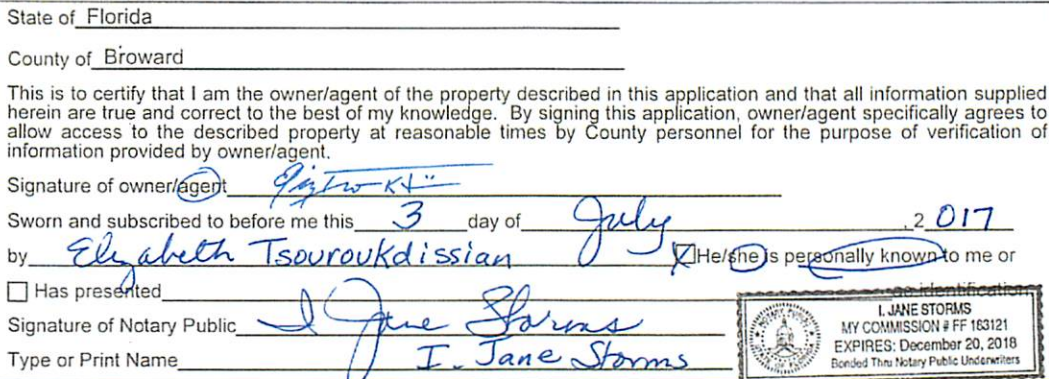 State of Florida
County of Broward
This is to certify that I am the owner/agent of the property described in this application and that all information supplied
herein are true and correct to the best of my knowledge. By signing this application, owner/agent specifically agrees to
allow access to the described property at reasonable times by County personnel for the purpose of verification of
information provided by owner/agent.
Signature of owner/agent
Sworn and subscribed to before me this 3 day of July, 2 017
by Elizabeth Tsouroukdissian ☒ He/she is personally known to me or
☐ Has presented as identification
Signature of Notary Public I Jane Storms
Type or Print Name I. Jane Storms
I. JANE STORMS
MY COMMISSION # FF 163121
EXPIRES: December 20, 2018
Bonded Thru Notary Public Underwriters